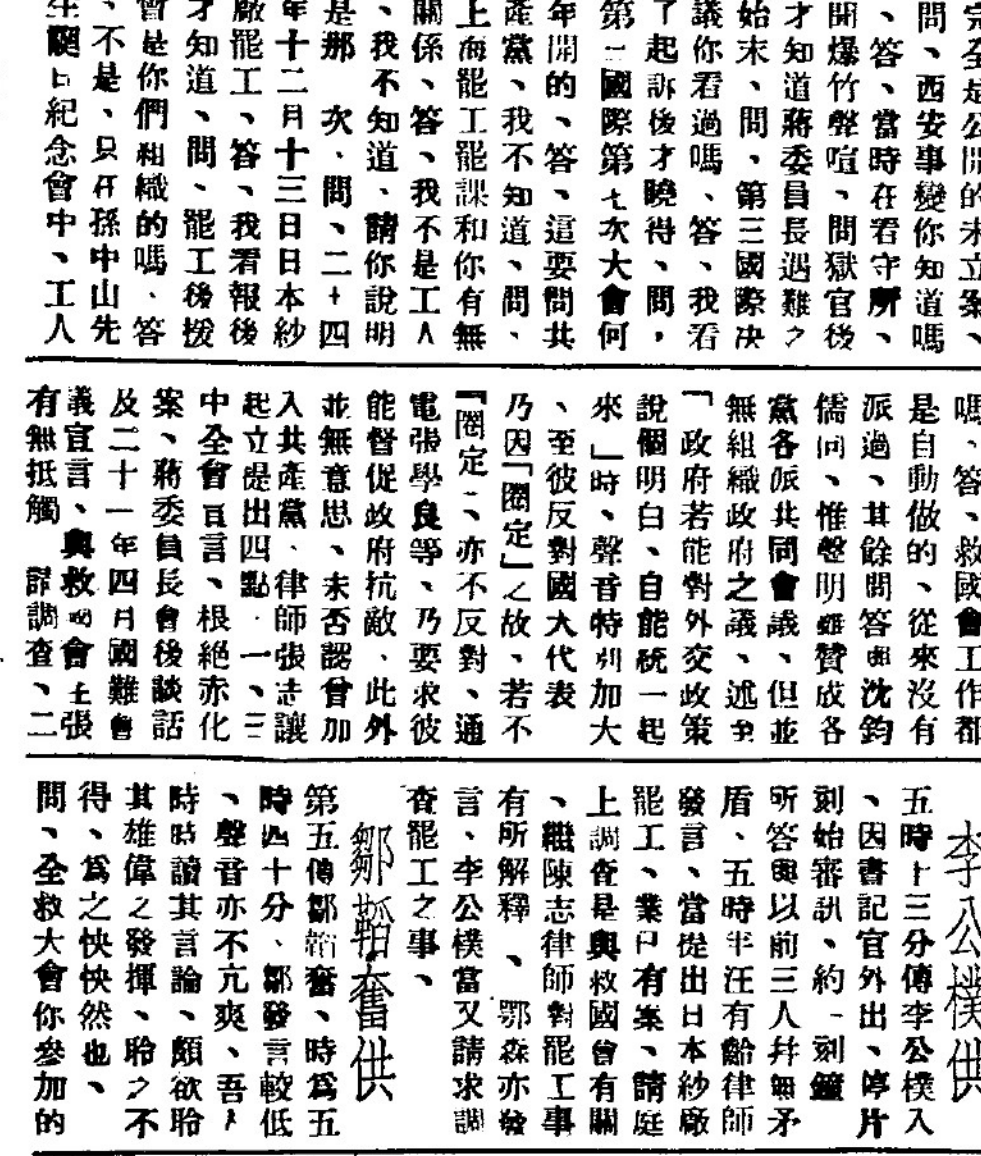 完全是公開的未立案、
問、西安事變你知道嗎
、答、當時在看守所、
開爆竹聲喧、問獄官後
才知道蔣委員長遇難之
始末、問、第三國際決
議你看過嗎、答、我看
了起訴後才曉得、問、
第三國際第七次大會何
年開的、答、這要問共
產黨、我不知道、問、
上海罷工罷課和你有無
關係、答、我不是工人
、我不知道、請你說明
是那 次、問、二十四
年十二月十三日日本紗
廠罷工、答、我看報後
才知道、問、罷工後援
會是你們組織的嗎、答
、不是、只在孫中山先
生 日紀念會中、工人
嗎、答、救國會工作都
是自動做的、從來沒有
派過、其餘問答與沈鈞
儒同、惟聲明雖贊成各
黨各派共同會議、但並
無組織政府之議、述至
「政府若能對外交政策
說個明白、自能統一起
來」時、聲音特別加大
、至彼反對國大代表
乃因「圈定」之故、若不
「圈定」、亦不反對、通
電張學良等、乃要求彼
能督促政府抗敵、此外
並無意思、未否認曾加
入共產黨、律師張志讓
起立提出四點、一、三
中全會宣言、根絕赤化
案、蔣委員長會後談話
及二十一年四月國難會
議宣言、與救國會主張
有無抵觸 請調查、二
李公樸供
五時十三分傳李公樸入
、因書記官外出、停片
刻始審訊、約一刻鐘
所答與以前三人并無矛
盾、五時半汪有齡律師
發言、當提出日本紗廠
罷工、業已有案、請庭
上調查是與救國會有關
、繼陳志律師對罷工事
有所解釋、鄂森亦發
言、李公樸當又請求調
查罷工之事、
鄒韜奮供
第五傳鄒韜奮、時爲五
時四十分、鄒發言較低
、聲音亦不亢爽、吾人
時時讀其言論、頗欲聆
其雄偉之發揮、聆之不
得、爲之怏怏然也、
問、全救大會你參加的